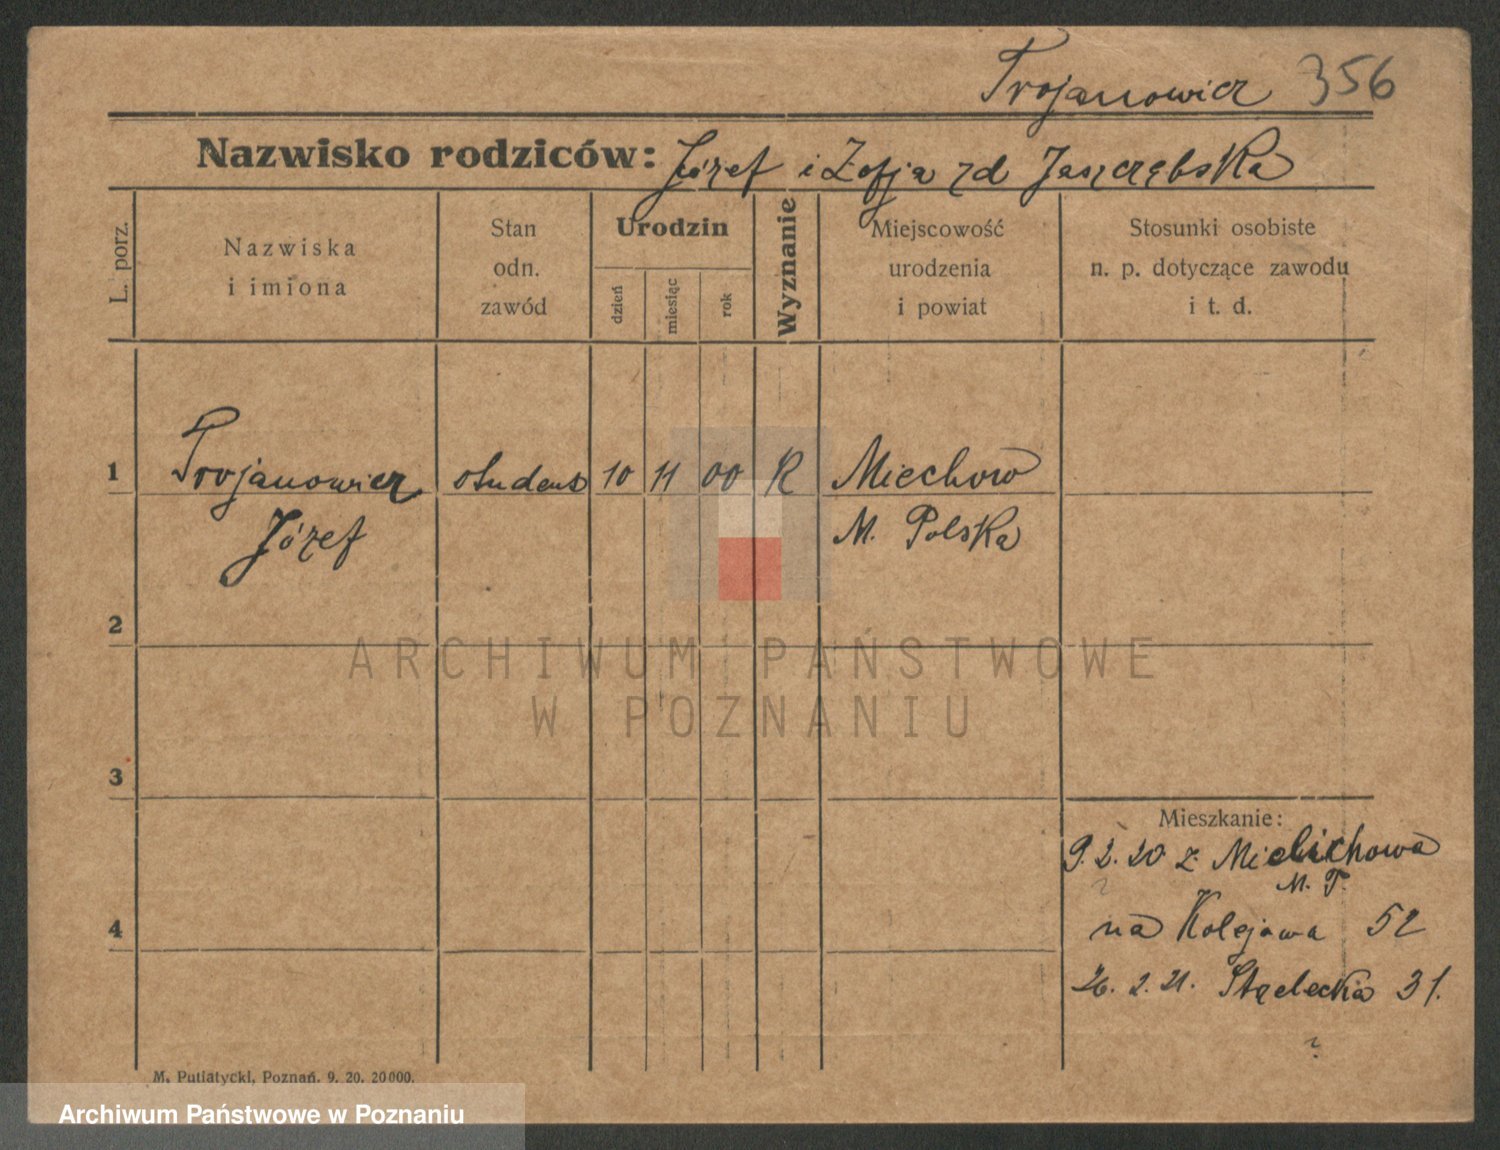 Trojanowicz 356
Nazwisko rodziców: Józef i Zofja zd Jaszczębska
L. porz.
Nazwiska
i imiona
Stan
odn.
zawód
Urodzin
dzień
miesiąc
rok
Wyznanie
Miejscowość
urodzenia
i powiat
Stosunki osobiste
n. p. dotyczące zawodu
i t. d.
1 Trojanowicz student 10 11 00 R Miechow
Józef M. Polska
2
ARCHIWUM PAŃSTWOWE
W POZNANIU
3
Mieszkanie:
9.2.20 z Miechowa
4 na Kolejowa 52
26.2.21. Strzelecka 31.
M. Putiatycki, Poznań. 9. 20. 20000.
Archiwum Państwowe w Poznaniu